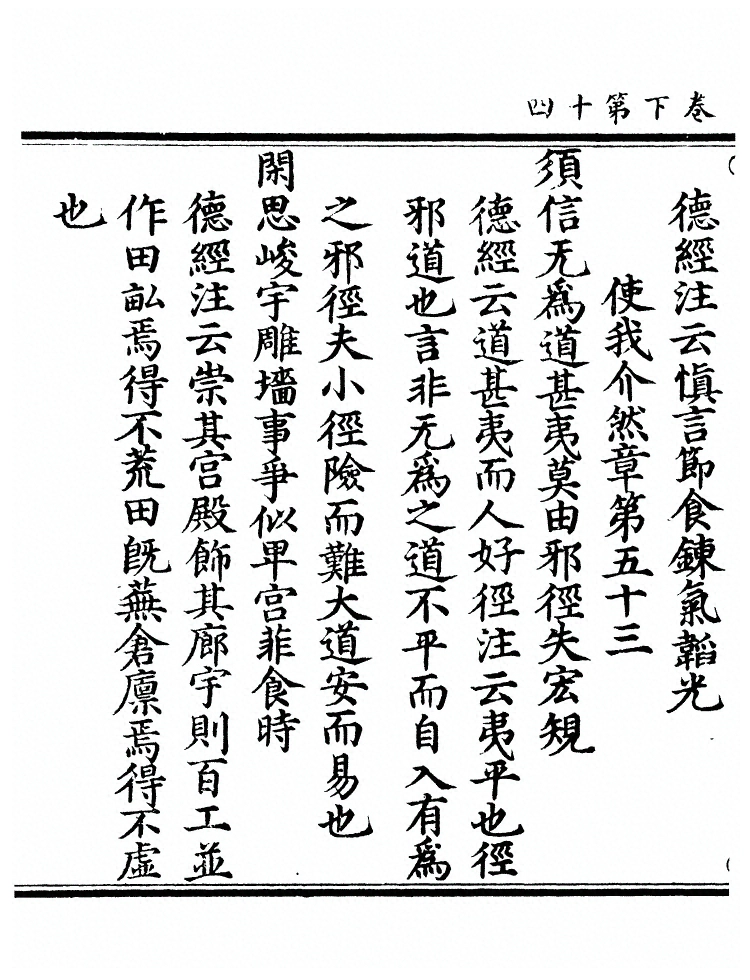 卷下第十四
德經注云愼言節食鍊氣韜光
使我介然章第五十三
須信无爲道甚夷莫由邪徑失宏規
德經云道甚夷而人好徑注云夷平也徑
邪道也言非无爲之道不平而自入有爲
之邪徑夫小徑險而難大道安而易也
閑思峻宇雕墻事爭似卑宫菲食時
德經注云崇其宫殿飾其廊宇則百工並
作田畝焉得不荒田旣蕪倉廪焉得不虛
也